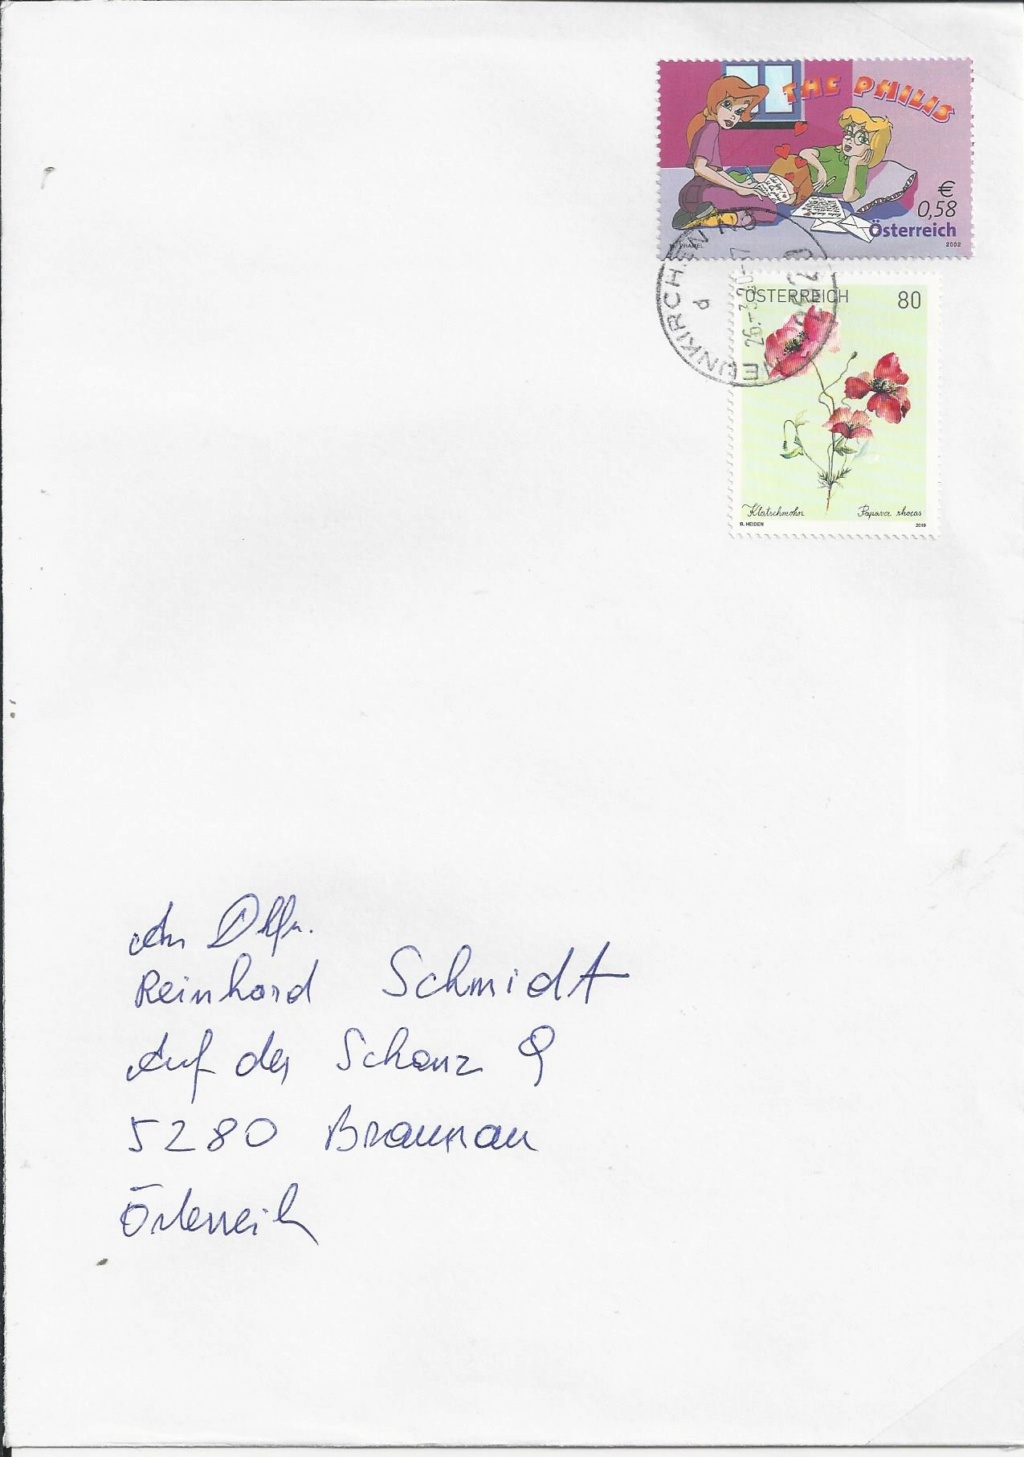 THE PHILIS
€
0,58
Österreich
2002
NEUNKIRCHEN NÖ
26.-3.20
ÖSTERREICH 80
Klatschmohn Papaver rhoeas
B. HEIDEN
An
Reinhard Schmidt
Auf der Schanz 9
5280 Braunau
Österreich